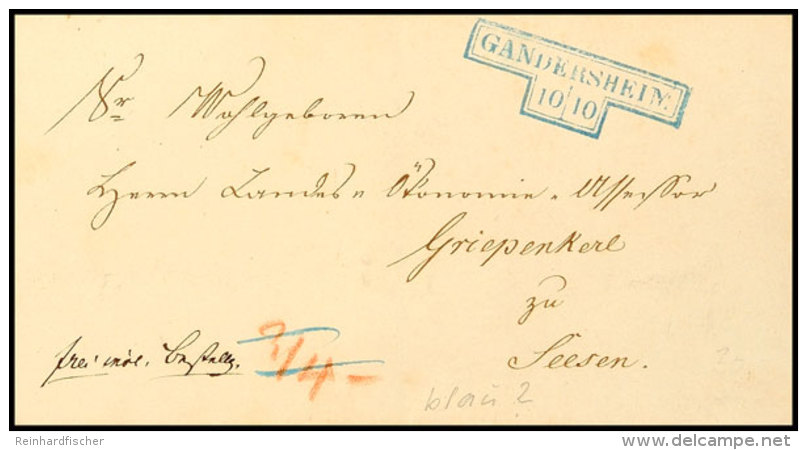 GANDERSHEIM.
10 10
Sr Wohlgeboren
Herrn Landes= Ökonomie= Assessor
Griepenkerl
zu
Seesen.
frei incl. Bestellg.
blau?
Reinhardfischer
delcampe.net